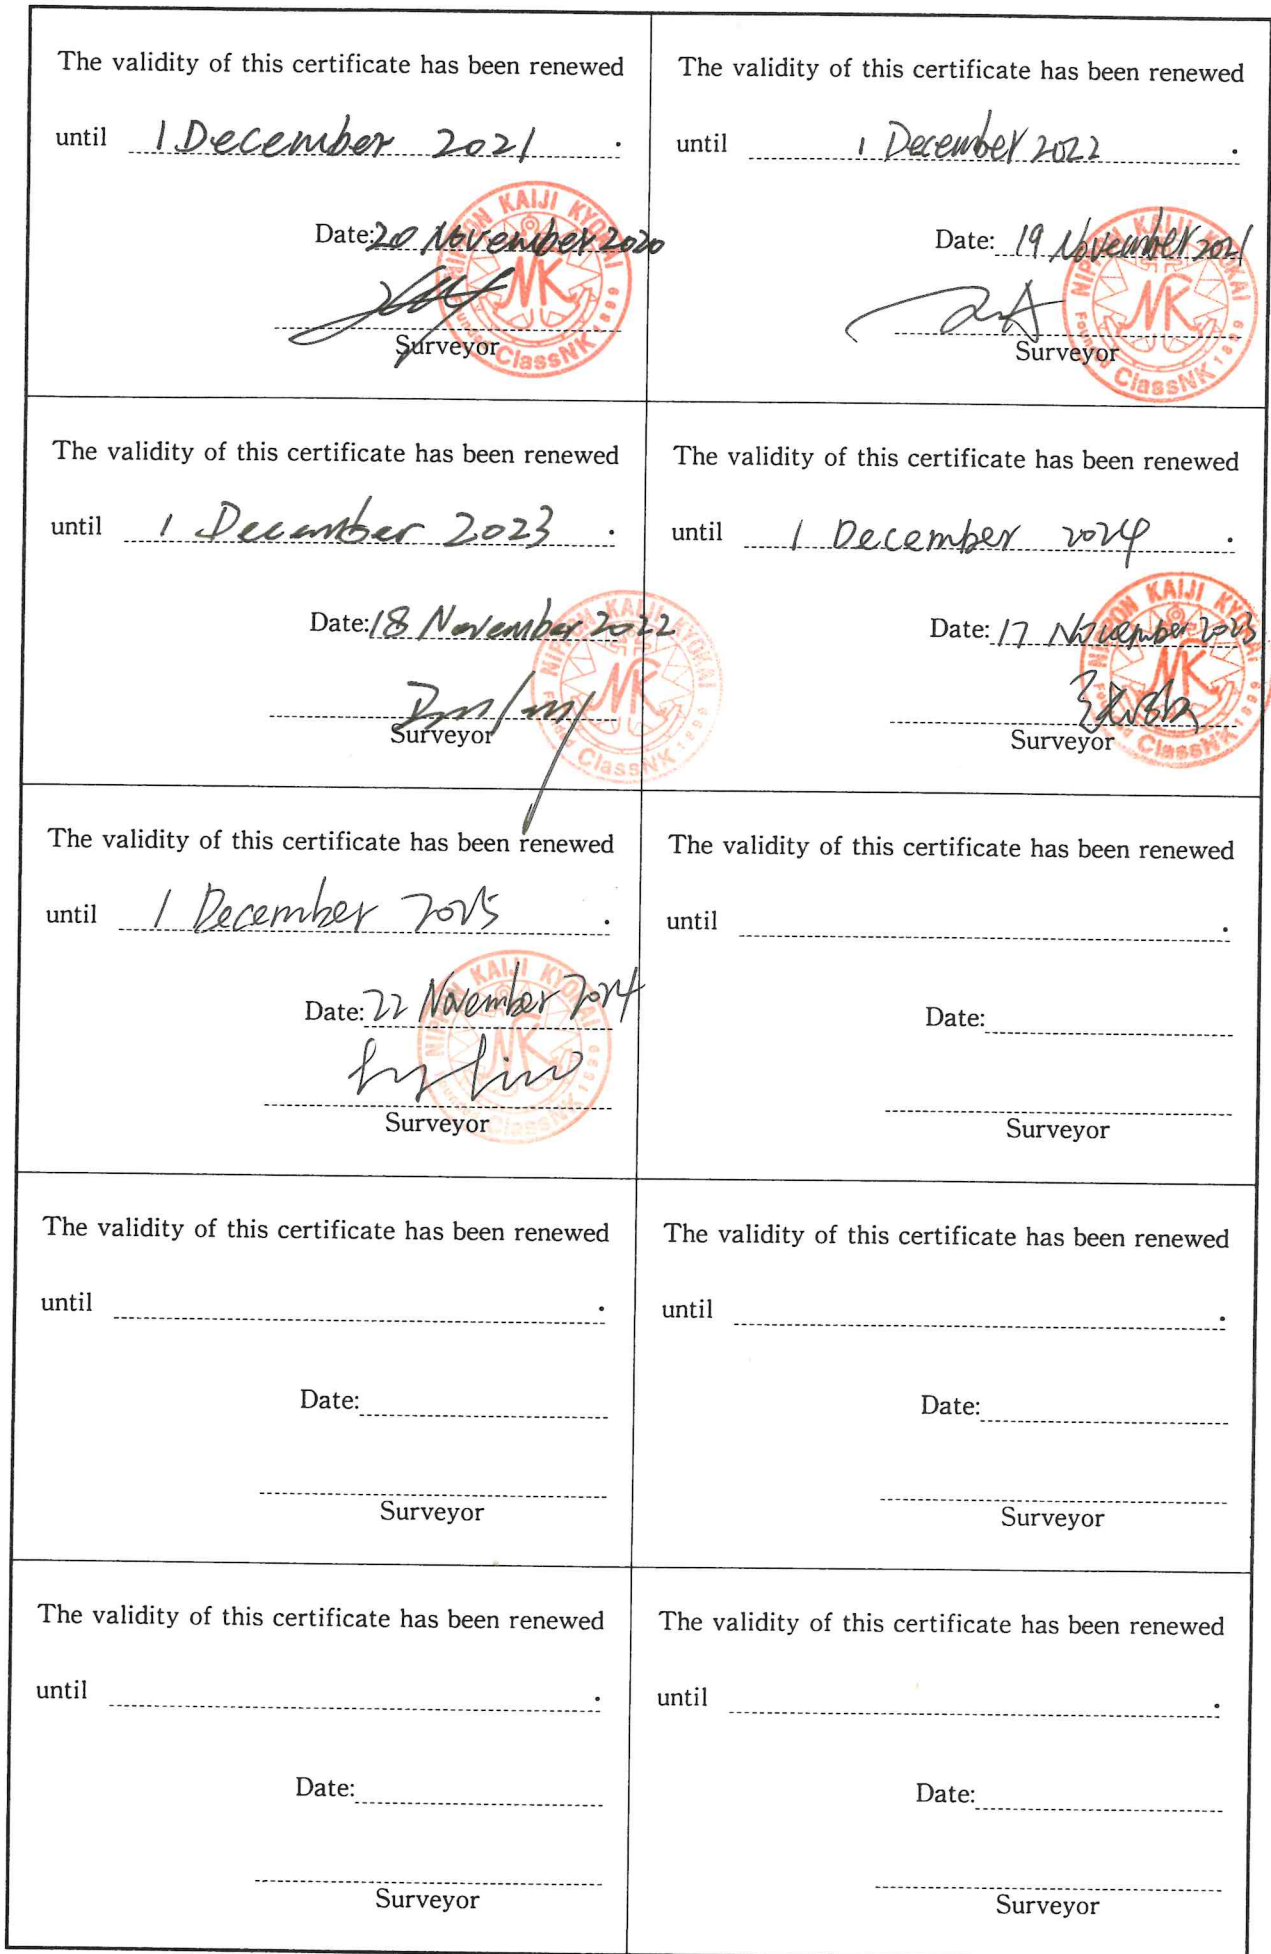 The validity of this certificate has been renewed
until 1 December 2021 .
Date: 20 November 2020
Surveyor
NIPPON KAIJI KYOKAI
NK
Founded ClassNK 1899
The validity of this certificate has been renewed
until 1 December 2022 .
Date: 19 November 2021
Surveyor
NIPPON KAIJI KYOKAI
NK
Founded ClassNK 1899
The validity of this certificate has been renewed
until 1 December 2023 .
Date: 18 November 2022
Surveyor
NIPPON KAIJI KYOKAI
NK
Founded ClassNK 1899
The validity of this certificate has been renewed
until 1 December 2024 .
Date: 17 November 2023
Surveyor
NIPPON KAIJI KYOKAI
NK
Founded ClassNK 1899
The validity of this certificate has been renewed
until 1 December 2025 .
Date: 22 November 2024
Surveyor
NIPPON KAIJI KYOKAI
NK
Founded ClassNK 1899
The validity of this certificate has been renewed
until .
Date:
Surveyor
The validity of this certificate has been renewed
until .
Date:
Surveyor
The validity of this certificate has been renewed
until .
Date:
Surveyor
The validity of this certificate has been renewed
until .
Date:
Surveyor
The validity of this certificate has been renewed
until .
Date:
Surveyor